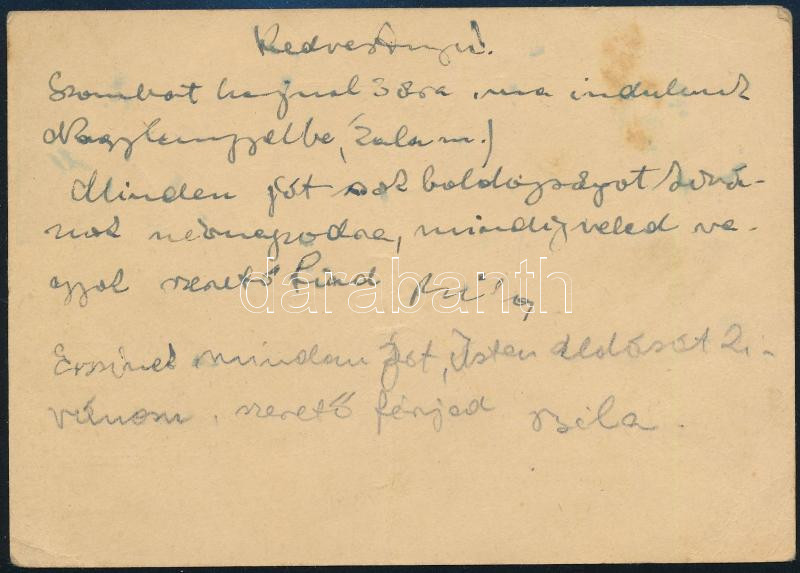 Kedves Anyu!
Szombat hajnal 3 óra, ma indulunk
Nagylengyelbe, (Zala m.)
Minden jót sok boldogságot kívá-
nok névnapodra, mindig veled va-
gyok szerető fiad
darabanth
minden jót, Isten áldását kí-
vánom, szerető férjed Béla.